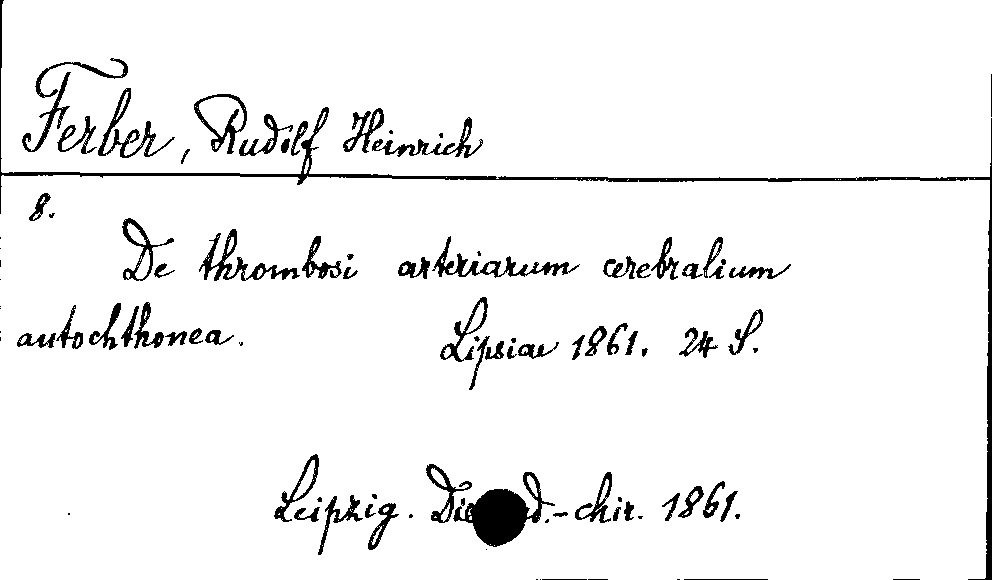 Ferber, Rudolf Heinrich
8.
De thrombosi arteriarum cerebralium
autochthonea. Lipsiae 1861. 24 S.
Leipzig. -chir. 1861.